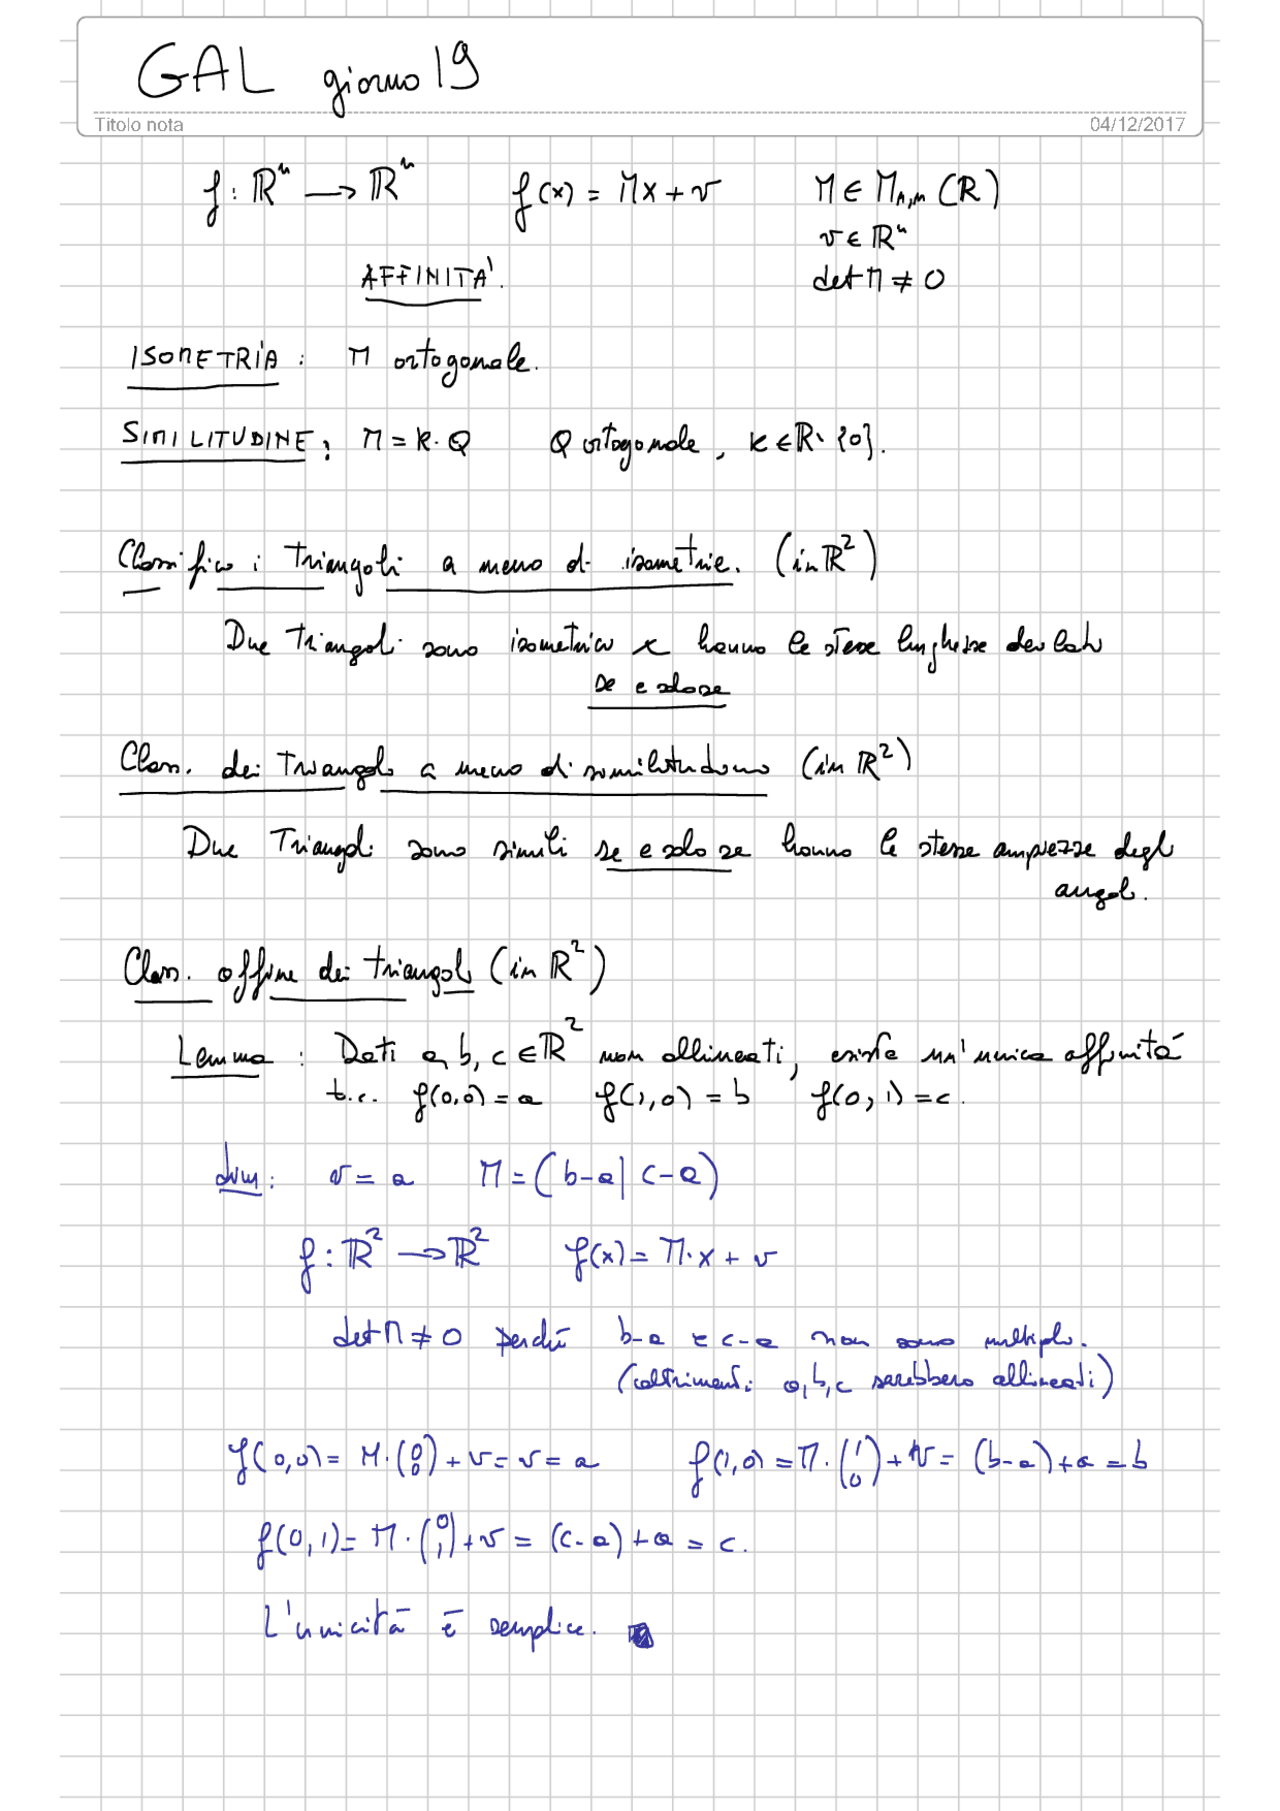 GAL giorno 19
Titolo nota 04/12/2017
f: ℝⁿ → ℝⁿ f(x) = Mx + v M ∈ M_{n,n}(ℝ)
v ∈ ℝⁿ
AFFINITA'. det M ≠ 0
ISOMETRIA: M ortogonale.
SIMILITUDINE: M = k·Q Q ortogonale, k ∈ ℝ∖{0}.
Classifico i triangoli a meno di isometrie. (in ℝ²)
Due triangoli sono isometrici se hanno le stesse lunghezze dei lati
se e solo se
Class. dei triangoli a meno di similitudini (in ℝ²)
Due Triangoli sono simili se e solo se hanno le stesse ampiezze degli
angoli.
Class. affine dei triangoli (in ℝ²)
Lemma: Dati a, b, c ∈ ℝ² non allineati, esiste un'unica affinità
t.c. f(0,0) = a f(1,0) = b f(0,1) = c.
dim: v = a M = (b-a | c-a)
f: ℝ² → ℝ² f(x) = M·x + v
det M ≠ 0 perché b-a e c-a non sono multipli.
(altrimenti a,b,c sarebbero allineati)
f(0,0) = M·(0 0) + v = v = a f(1,0) = M·(1 0) + v = (b-a) + a = b
f(0,1) = M·(0 1) + v = (c-a) + a = c.
L'unicità è semplice.